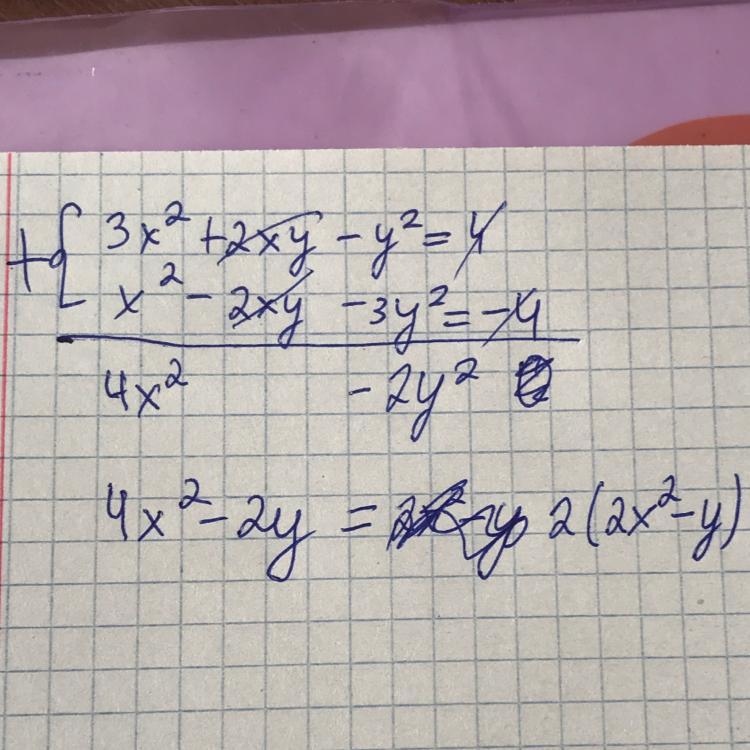 +{ 3x² + 2xy - y² = 4
x² - 2xy - 3y² = -4
4x² - 2y²
4x² - 2y = 2(2x² - y)